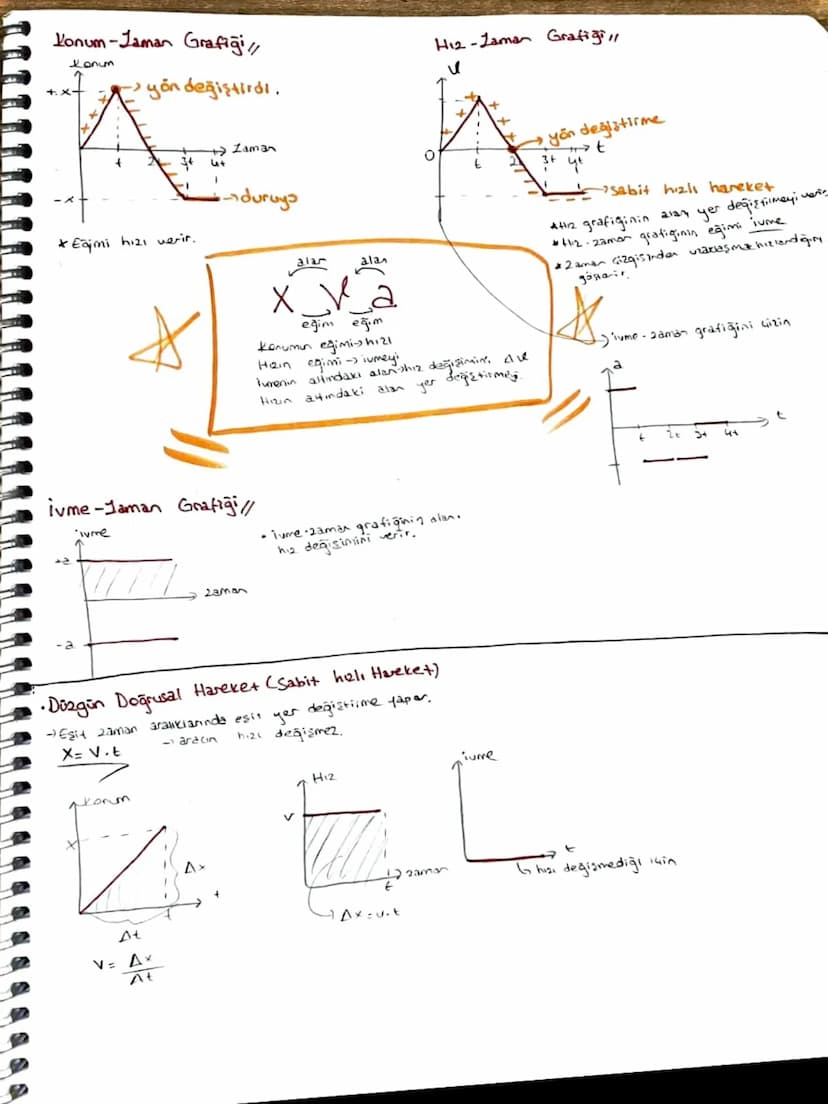 Konum-Zaman Grafiği //
Konum
+x
yön değiştirdi.
Zaman
t 2t 3t 4t
-x
duruyo
* Eğimi hızı verir.
Hız-Zaman Grafiği //
V
yön değiştirme
0
t
t 2t 3t 4t
sabit hızlı hareket
* Hız grafiğinin alan yer değiştirmeyi verir
* Hız-zaman grafiğinin eğimi ivme
* Zaman çizgisinden uzaklaşma hızlandığını
gösterir.
alan alan
x v a
eğim eğim
Konumun eğimi → hızı
Hızın eğimi → ivmeyi
İvmenin altındaki alan → hız değişimini, ΔV
Hızın altındaki alan yer değiştirmeyi
→ ivme-zaman grafiğini çizin
a
t
t 2t 3t 4t
İvme-Zaman Grafiği //
ivme
+a
zaman
-a
• ivme-zaman grafiğinin alan.
hız değişimini verir.
• Düzgün Doğrusal Hareket (Sabit hızlı Hareket)
→ Eşit zaman aralıklarında eşit yer değiştirme yapar.
→ aracın hızı değişmez.
X = V.t
Konum
x
Δx
t
t
Δt
V = Δx/Δt
Hız
V
zaman
t
Δx = v.t
ivme
t
hızı değişmediği için